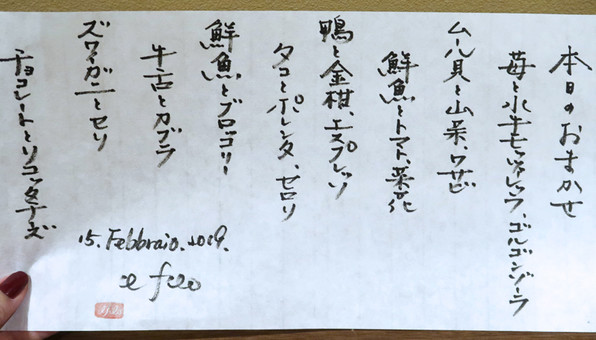 本日のおまかせ
苺と水牛モッツァレッラ、ゴルゴンゾーラ
ムール貝と山菜、ワサビ
鮮魚とトマト、菜花
鴨と金柑、エスプレッソ
タコとポレンタ、セロリ
鮮魚とブロッコリー
牛舌とカブラ
ズワイガニとセリ
チョコレートとリコッタチーズ
15. Febbraio. 2019.